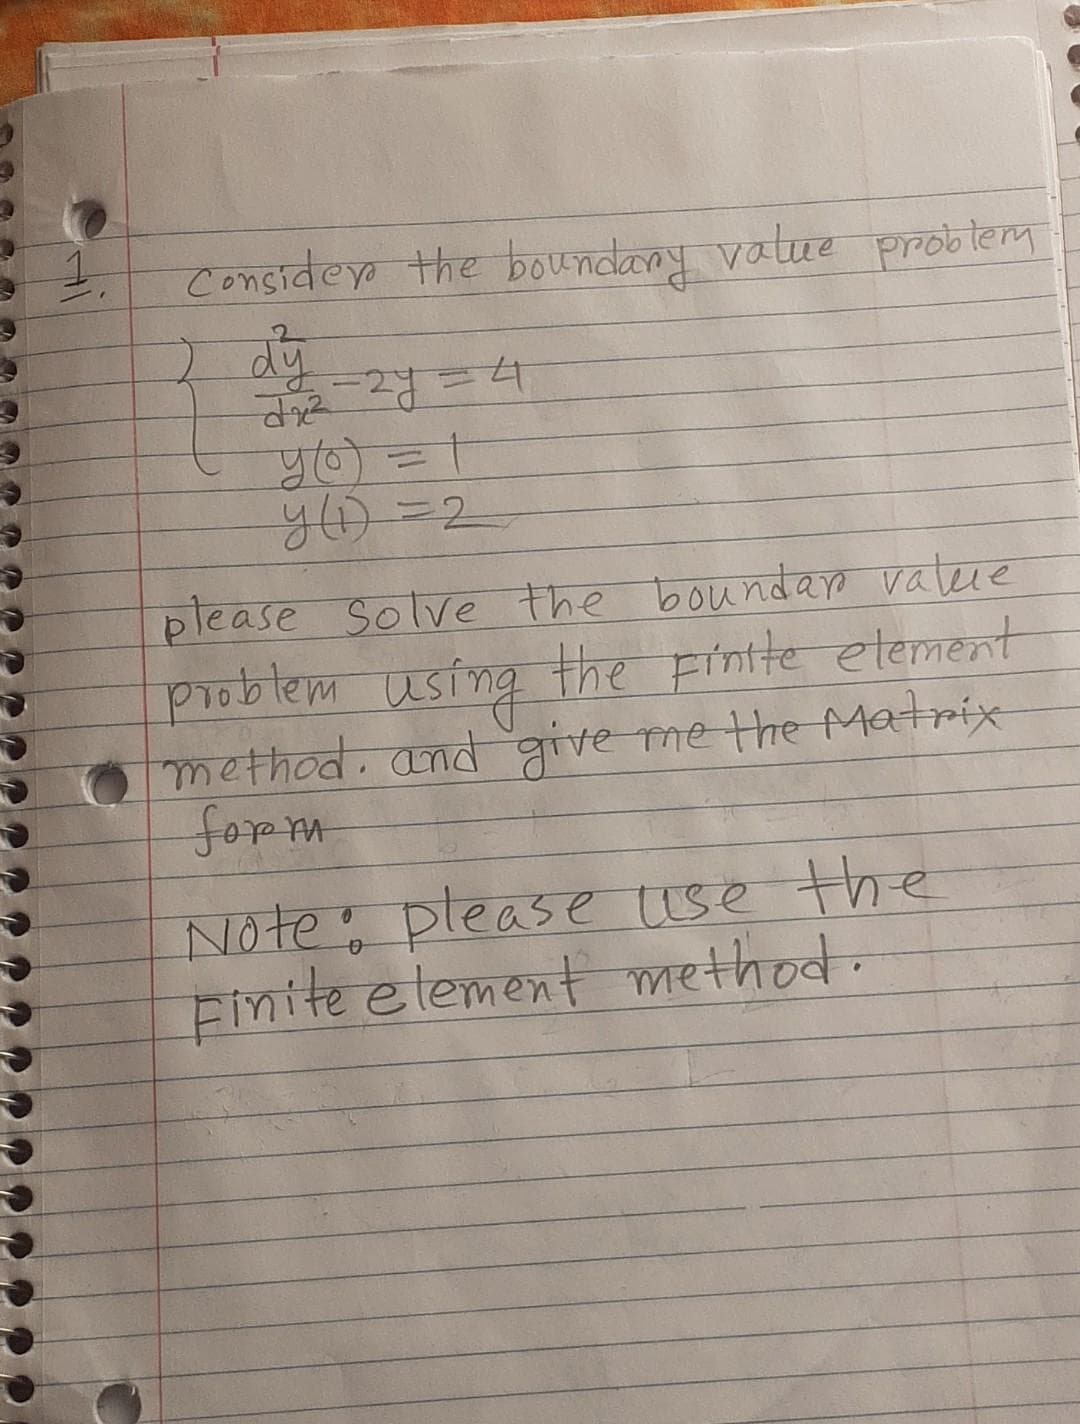 1. Consider the boundary value problem
d²y/dx² - 2y = 4
y(0) = 1
y(1) = 2
please solve the boundar value
problem using the Finite element
method. and give me the Matrix
form
Note: please use the
Finite element method.